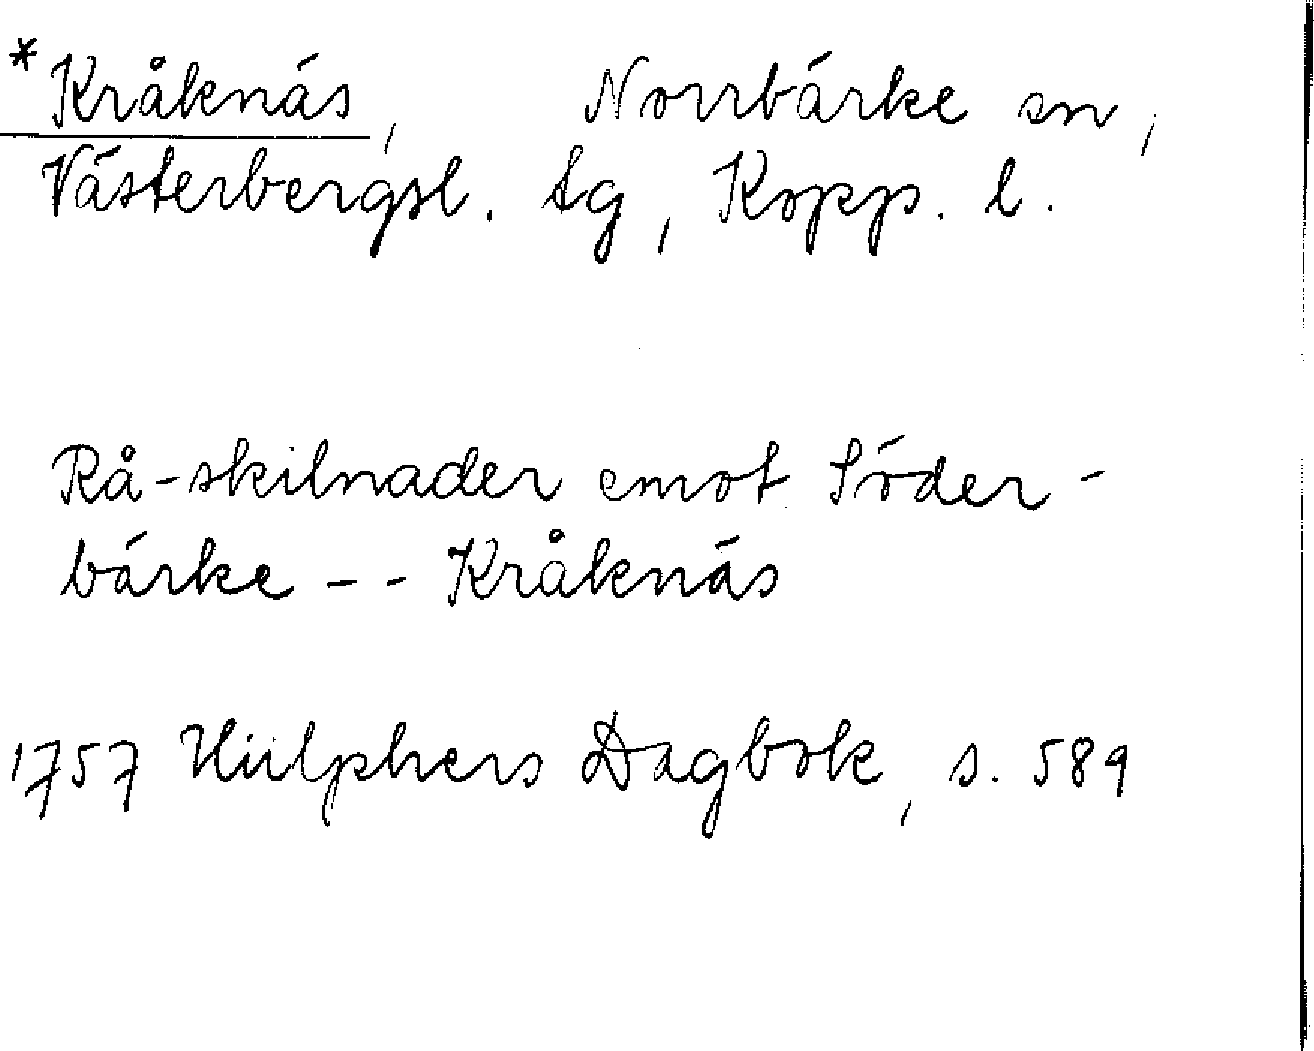 *Kråknäs, Norrbärke sn,
Västerbergsl. tg, Kopp. l.
Rå-skilnader emot Söder-
bärke - - Kråknäs
1757 Hülphers Dagbok, s. 589